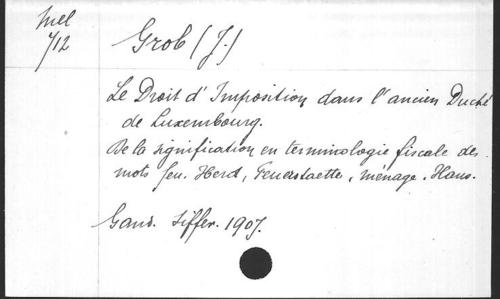 Mel
712
Grob (J.)
Le Droit d'Imposition dans l'ancien Duché
de Luxembourg.
De la signification en terminologie fiscale des
mots feu. Herd, Feuerstaette, ménage. Haus.
Gand. Siffer. 1907.